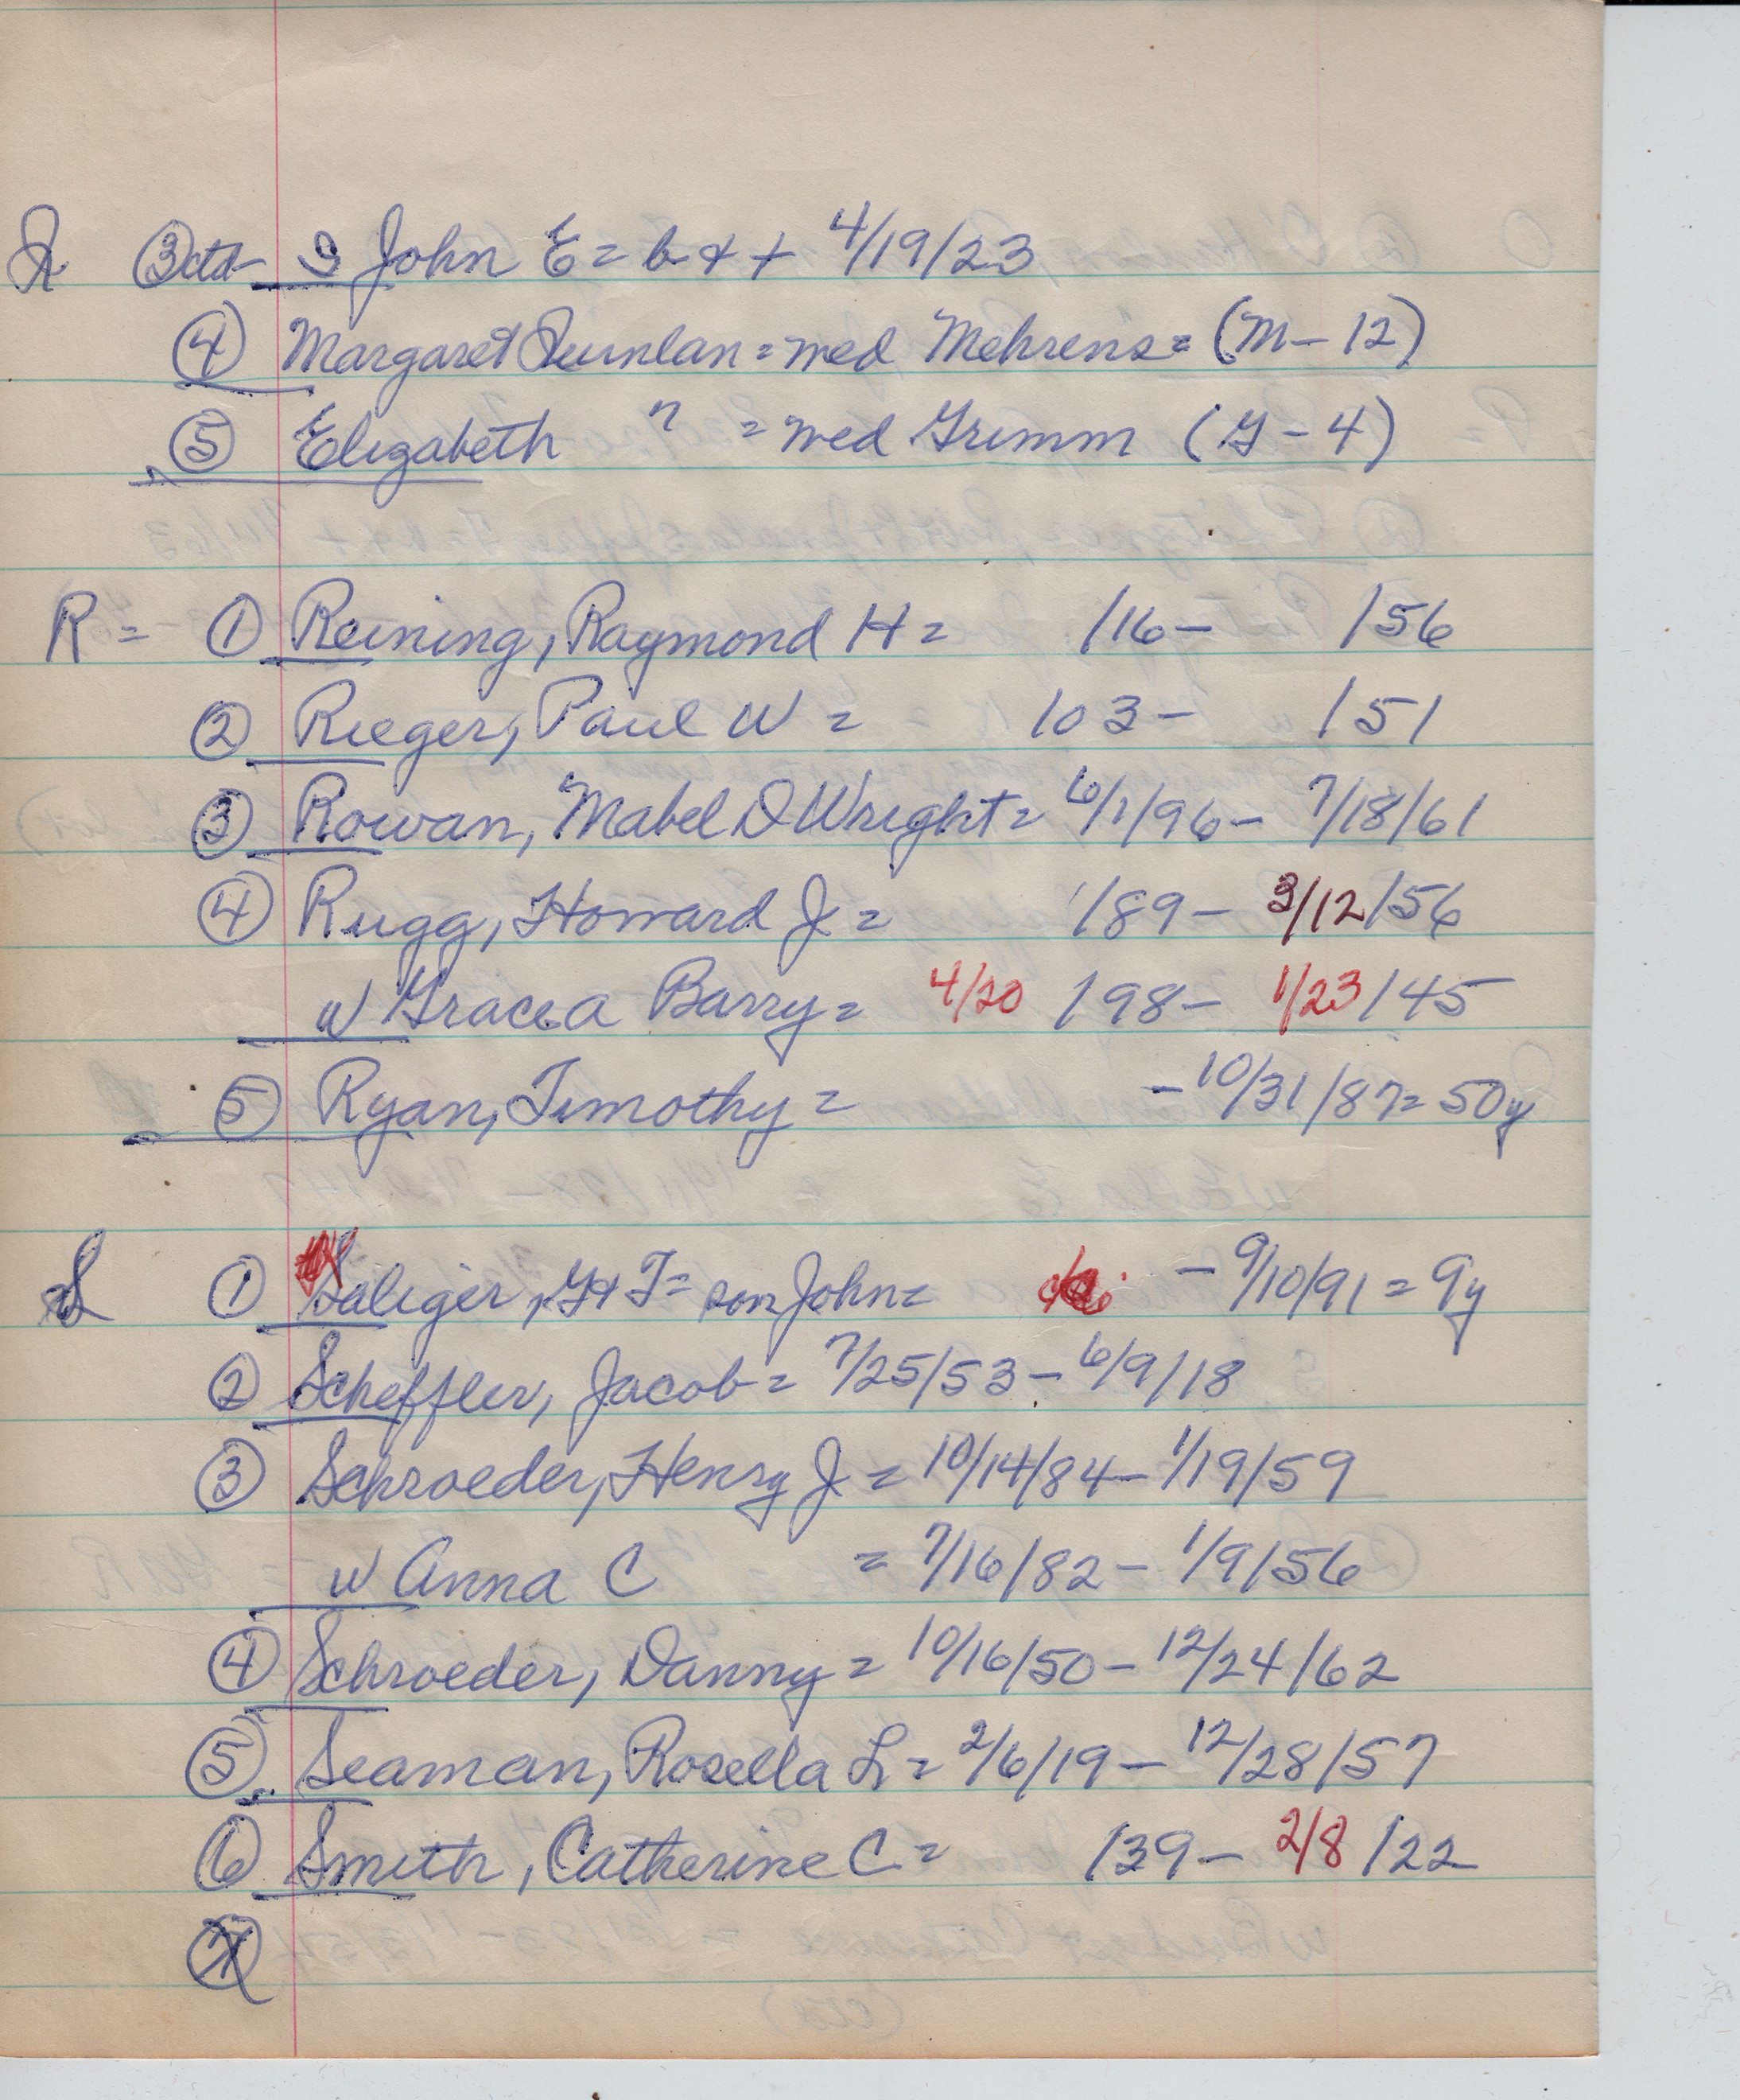 Q ③ ctd - S John E = b & + 4/19/23
④ Margaret Quinlan = med Mehrens = (M - 12)
⑤ Elizabeth " = med Grimm (G - 4)
R = ① Reining, Raymond H = /16 - /56
② Rieger, Paul W = 103 - /51
③ Rowan, Mabel D Wright = 6/1/96 - 7/18/61
④ Rugg, Howard J = /89 - 3/12/56
w Grace A Barry = 4/20 /98 - 1/23/45
⑤ Ryan, Timothy = - 10/31/87 = 50y
S ① Saliger, G & T = son John = - 9/10/91 = 9y
② Scheffler, Jacob = 7/25/53 - 6/9/18
③ Schroeder, Henry J = 10/14/84 - 1/19/59
w Anna C = 7/16/82 - 1/9/56
④ Schroeder, Danny = 10/16/50 - 12/24/62
⑤ Seaman, Rosella L = 2/6/19 - 12/28/57
⑥ Smith, Catherine C = /39 - 2/8/22